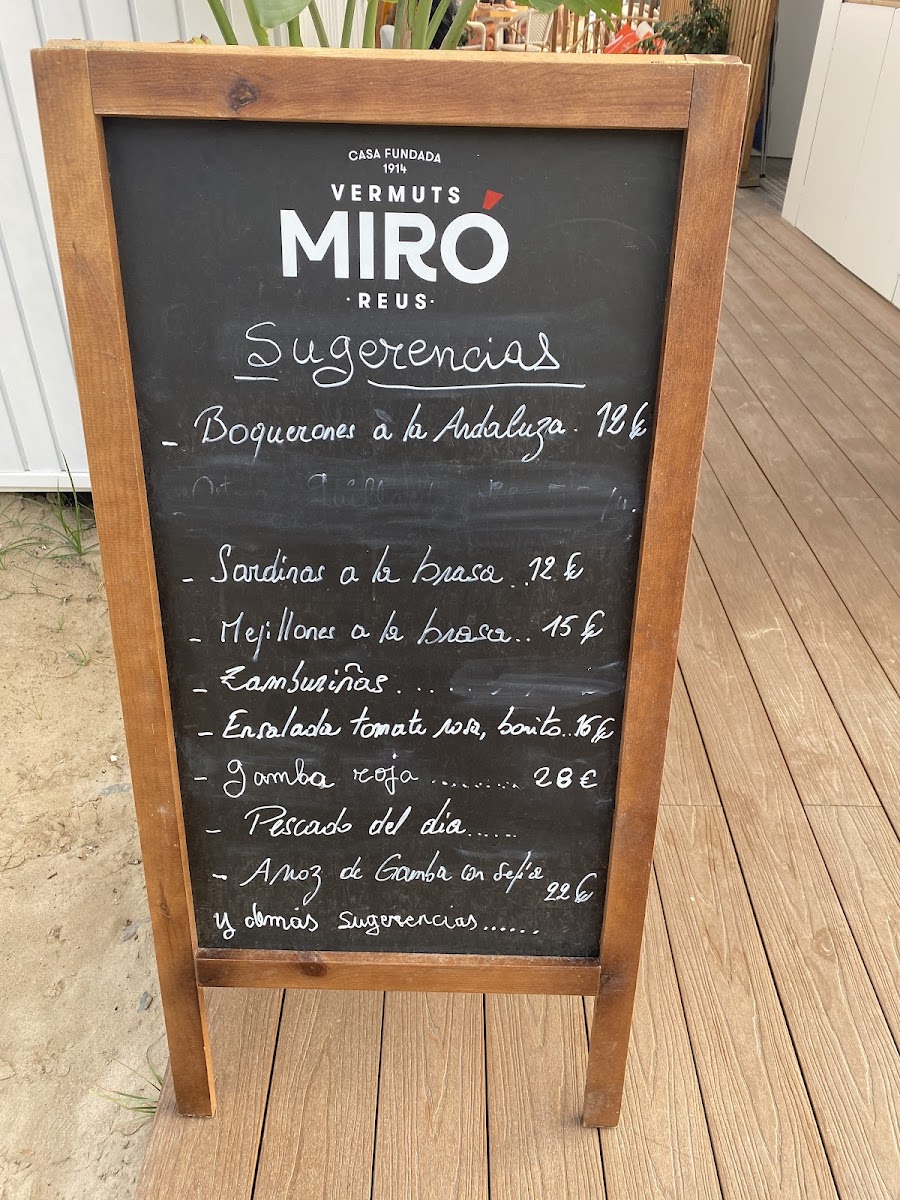 CASA FUNDADA
1914
VERMUTS
MIRÓ
·REUS·
Sugerencias
- Boquerones a la Andaluza. 12€
- Sardinas a la brasa.. 12€
- Mejillones a la brasa.. 15€
- Zamburiñas....
- Ensalada tomate rosa, bonito..16€
- gamba roja ......... 28€
- Pescado del día.....
- Arroz de Gamba con sepia
22€
y demás sugerencias......